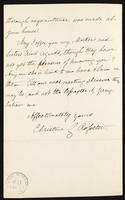 through acquaintance, was made at
your house!
May I offer you my Mother and
Sisters kind regards, though they have
not yet the pleasure of knowing you?
Anyone who is kind to me has a claim on
them. Till our next meeting whenever that
may be, and not the top
believe me
Affectionately yours
Christina G. Rossetti